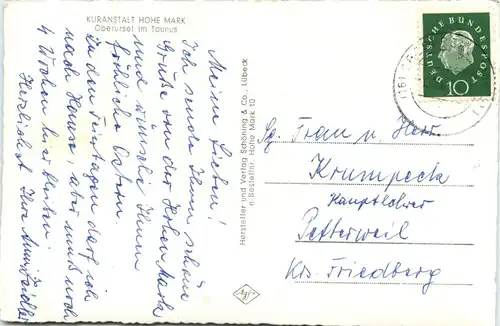 KURANSTALT HOHE MARK
Oberursel im Taunus
Meine Lieben!
Ich sende Ihnen schöne
Grüße von der Hohen Mark
und wünsche Ihnen
fröhliche Ostern.
In den Feiertagen darf ich
nach Hause, aber muß noch
4 Wochen hier bleiben.
Herzlichst Ihre
Hersteller und Verlag Schöning & Co., Lübeck
Bestellnr. Hohe Mark 10
DEUTSCHE BUNDESPOST
10
(16)
Frau u. Herr
Krumpeck
Hauptlehrer
Petterweil
Krs. Friedberg